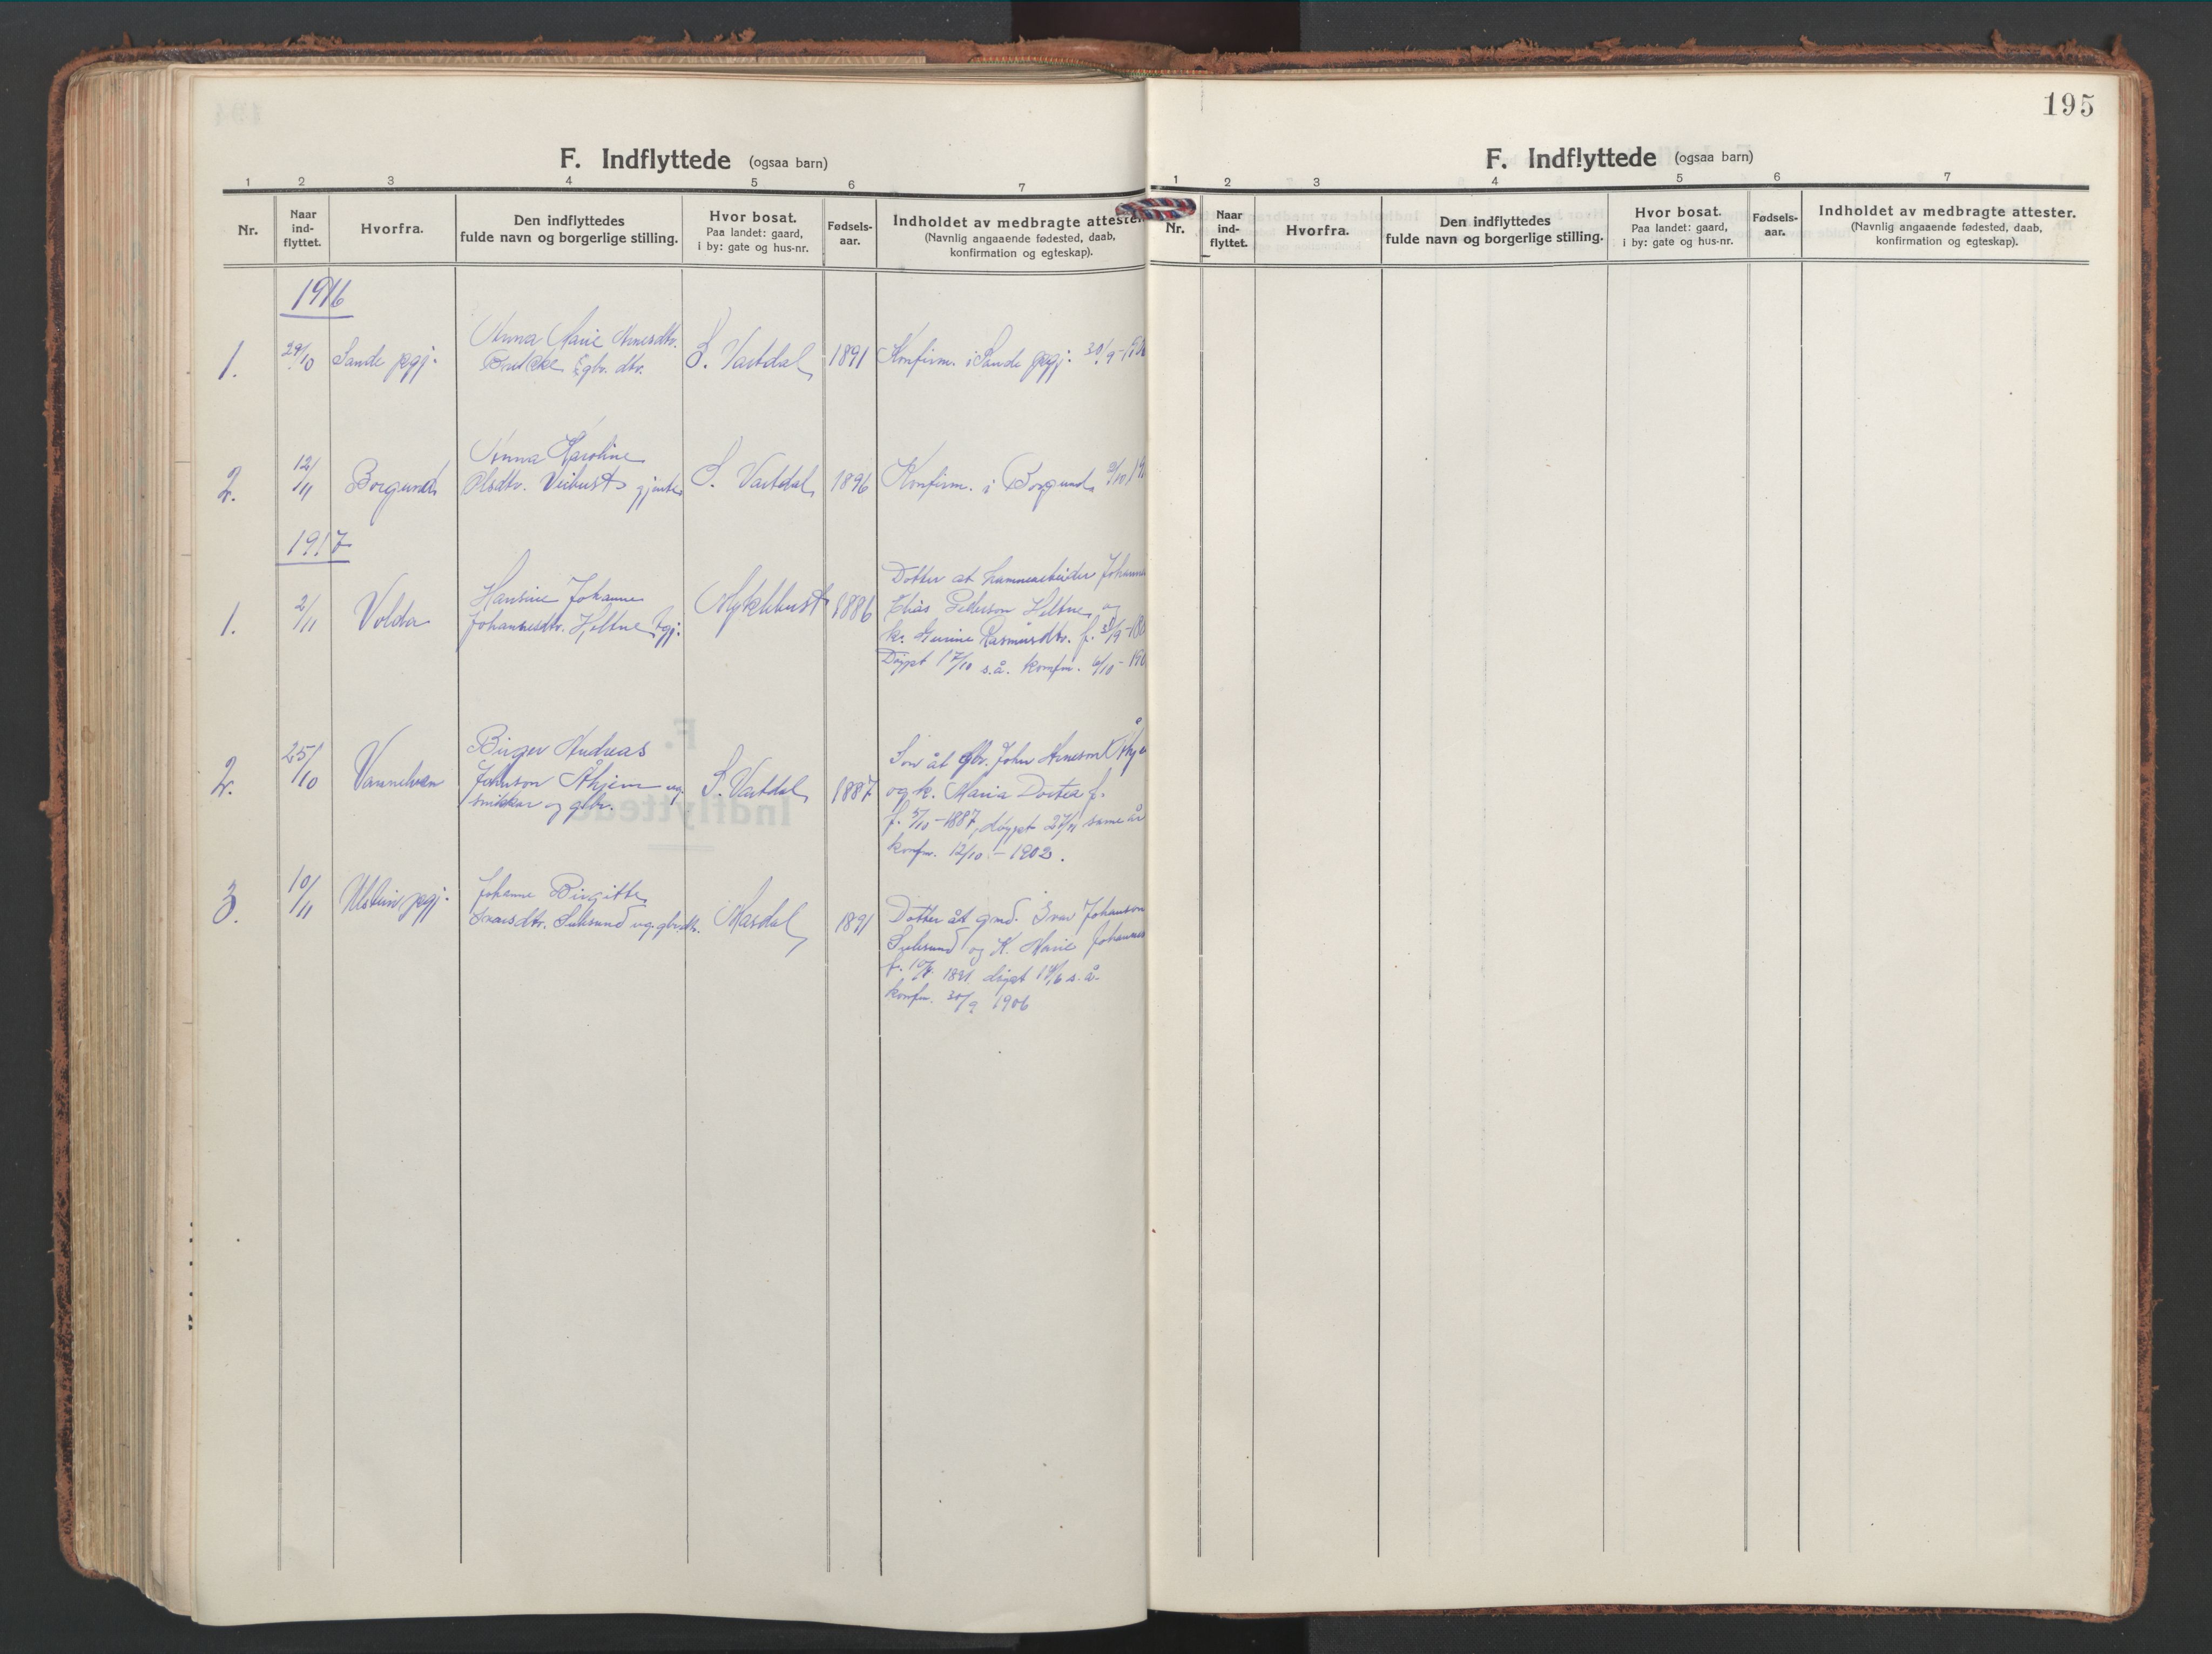 195
F. Indflyttede (ogsaa barn)
1 2 3 4 5 6 7
Nr.
Naar
ind-
flyttet.
Hvorfra.
Den indflyttedes
fulde navn og borgerlige stilling.
Hvor bosat.
Paa landet: gaard,
i by: gate og hus-nr.
Fødsels-
aar.
Indholdet av medbragte attester.
(Navnlig angaaende fødested, daab,
konfirmation og egteskap).
1916
1. 29/10 Sande pgj.
Anna Marie Arnesdtr.
gbr. dtr.
S. Vartdal 1891
Konfirm. i Sande pgj. 30/9
2. 12/11 Borgund
Anna Karoline
Olsdtr. Veibust gjente
S. Vartdal 1896
Konfirm. i Borgund
1917
1. 2/11 Volda
Hansine Johanne
Johannesdtr. Hjeltne
Myklebust 1886
Dotter at
Elias Pederson Heltne og
k. Gurine Rasmusdtr. f.
Døypt 17/10 s.å. komfm. 6/10
2. 25/10 Vannelven
Birger Andreas
Johnson Åhjem ug.
snikkar og gbr.
S. Vartdal 1887
Son åt gbr. John Arneson
og k. Maria Dortea f.
f. 5/10-1887, døypt 27/11 same år
konfm. 12/10 - 1902.
3. 10/11 Ulstein pgj.
Johanne Birgitte
Ivarsdtr. ug. gbrdtr.
Masdal 1891
Dotter åt gmd. Ivar Johanson
og K. Marie
1891 døypt 14/6 s. å.
konfm. 30/9 1906
F. Indflyttede (ogsaa barn)
1 2 3 4 5 6 7
Nr.
Naar
ind-
flyttet.
Hvorfra.
Den indflyttedes
fulde navn og borgerlige stilling.
Hvor bosat.
Paa landet: gaard,
i by: gate og hus-nr.
Fødsels-
aar.
Indholdet av medbragte attester.
(Navnlig angaaende fødested, daab,
konfirmation og egteskap).